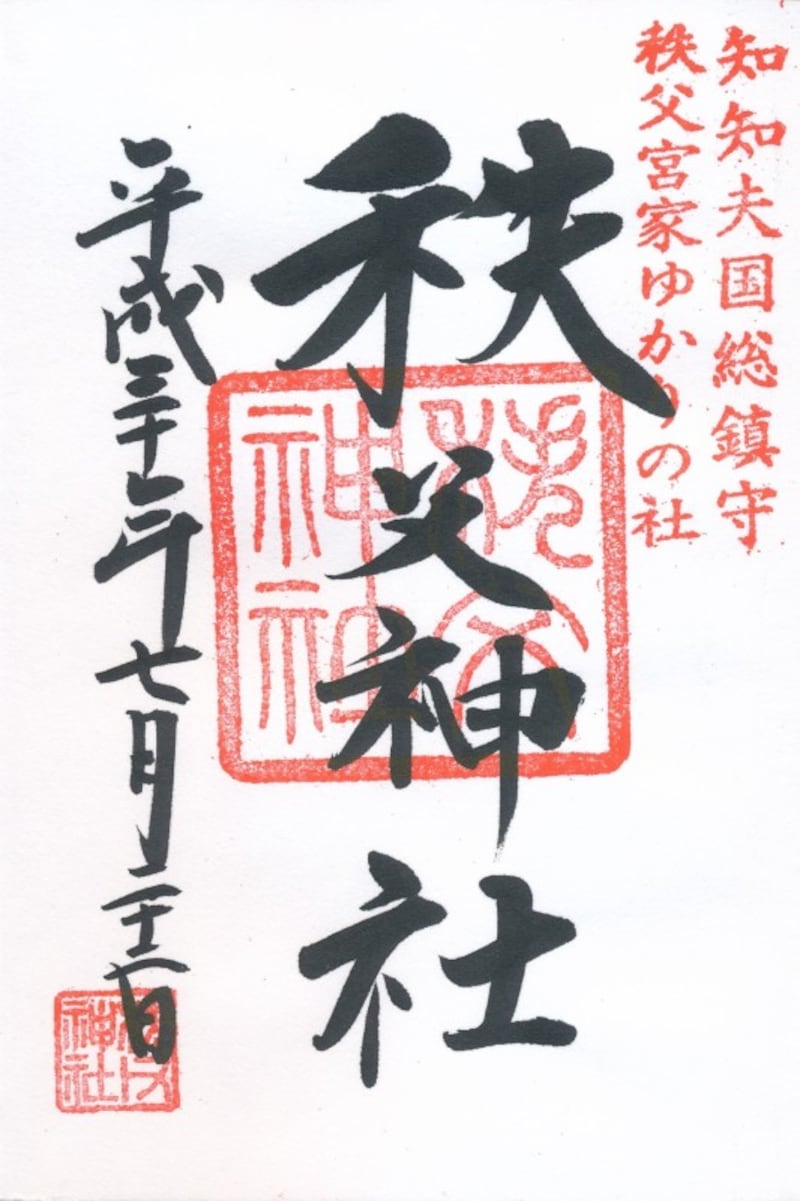 知知夫国総鎮守
秩父宮家ゆかりの社
秩父神社
秩父神社
平成三十年七月二十二日
秩父神社